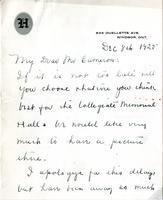 H
WINDSOR, ONT.
Dec 8th 1925
My Dear Mr Cameron:
If it is not too late will
you choose whatever you think
best for the Collegiate Memorial
Hall. We would like very
much to have a picture
there.
I apologize for this delay
but have been away so much